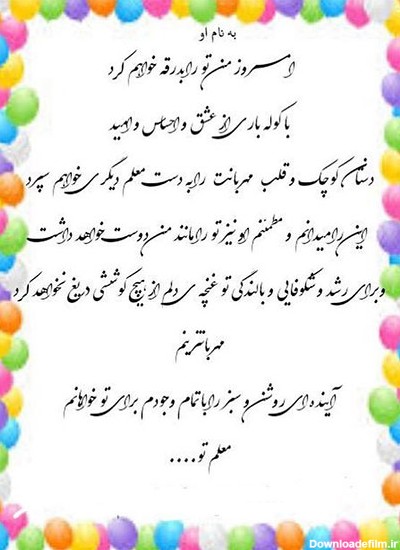 به نام او
امروز من تو را بدرقه خواهم کرد
با کوله باری از عشق و احساس و امید
دستان کوچک و قلب مهربانت را به دست معلم دیگری خواهم سپرد
این را میدانم و مطمئنم او نیز تو را مانند من دوست خواهد داشت
و برای رشد و شکوفایی و بالندگی تو غنچه ی دلم از هیچ کوششی دریغ نخواهد کرد
مهربانترینم
آینده ای روشن و سبز را با تمام وجودم برای تو خواهانم
معلم تو....
Downloadefilm.ir